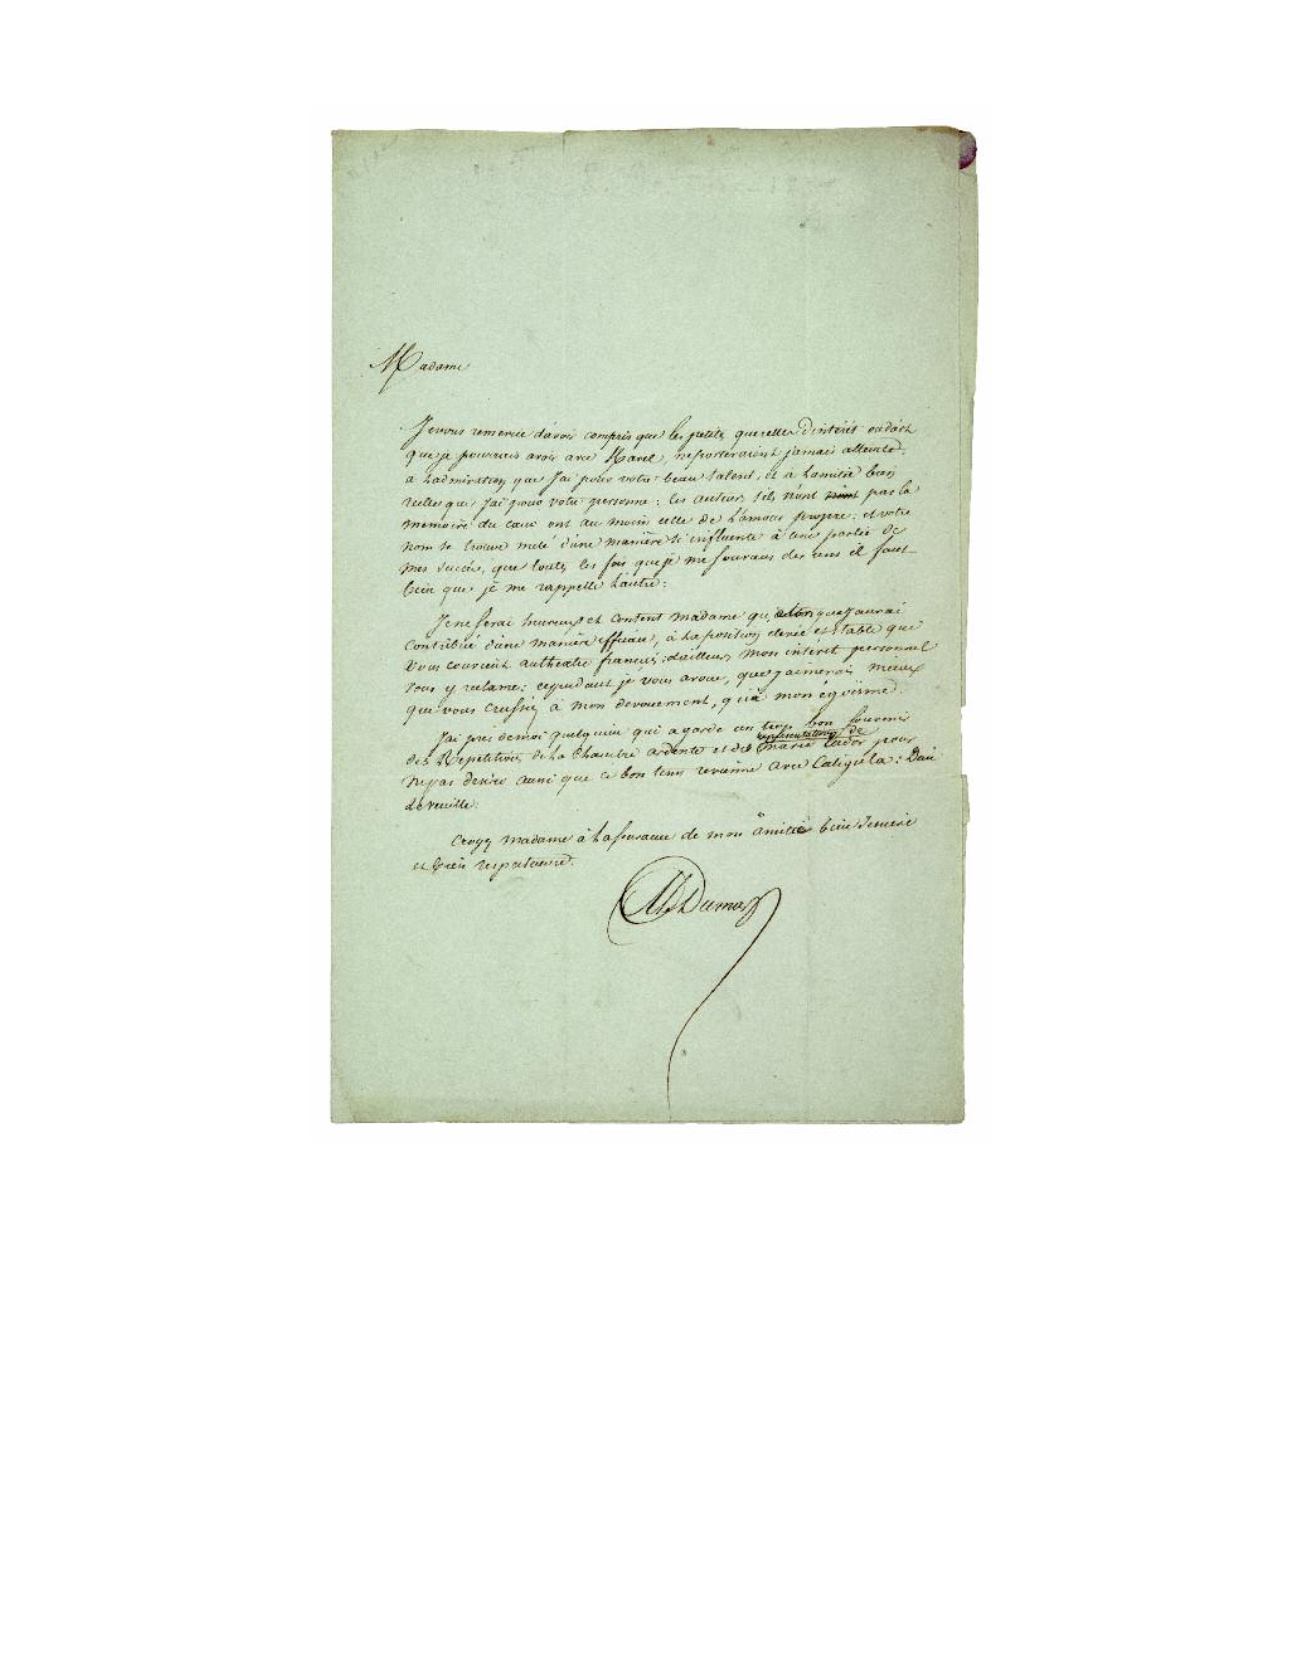 Madame
Je vous remercie d'avoir compris que les petites querelles d'intérêt ou d'art
que je pourrais avoir avec Harel, ne porteraient jamais atteinte
a l'admiration que J'ai pour votre beau talent, et a l'amitié bien
réelle que J'ai pour votre personne: les auteurs s'ils n'ont n'ont pas la
mémoire du cœur ont au moins celle de l'amour propre: et votre
nom se trouve mêlé d'une manière si influente à une partie de
mes succès, que toutes les fois que je me souviens des uns il faut
bien que je me rappelle l'autre:
Je ne serai heureux et content madame qu' alors que j'aurai
contribué d'une manière efficace, à la position élevée et stable que
vous convient au théâtre français: d'ailleurs mon intérêt personnel
vous y réclame: cependant je vous avoue, que j'aimerais mieux
que vous crussiez à mon dévouement, qu'à mon égoïsme.
J'ai près de moi quelqu'un qui a gardé un trop bon souvenir
des Répétitions de la Chambre ardente et des représentations de marie tudor pour
ne pas désirer aussi que ce bon tems revienne avec Caligula: Dieu
le veuille:
Croyez madame à l'assurance de mon amitié bien sincère
et bien respectueuse.
Al Dumas